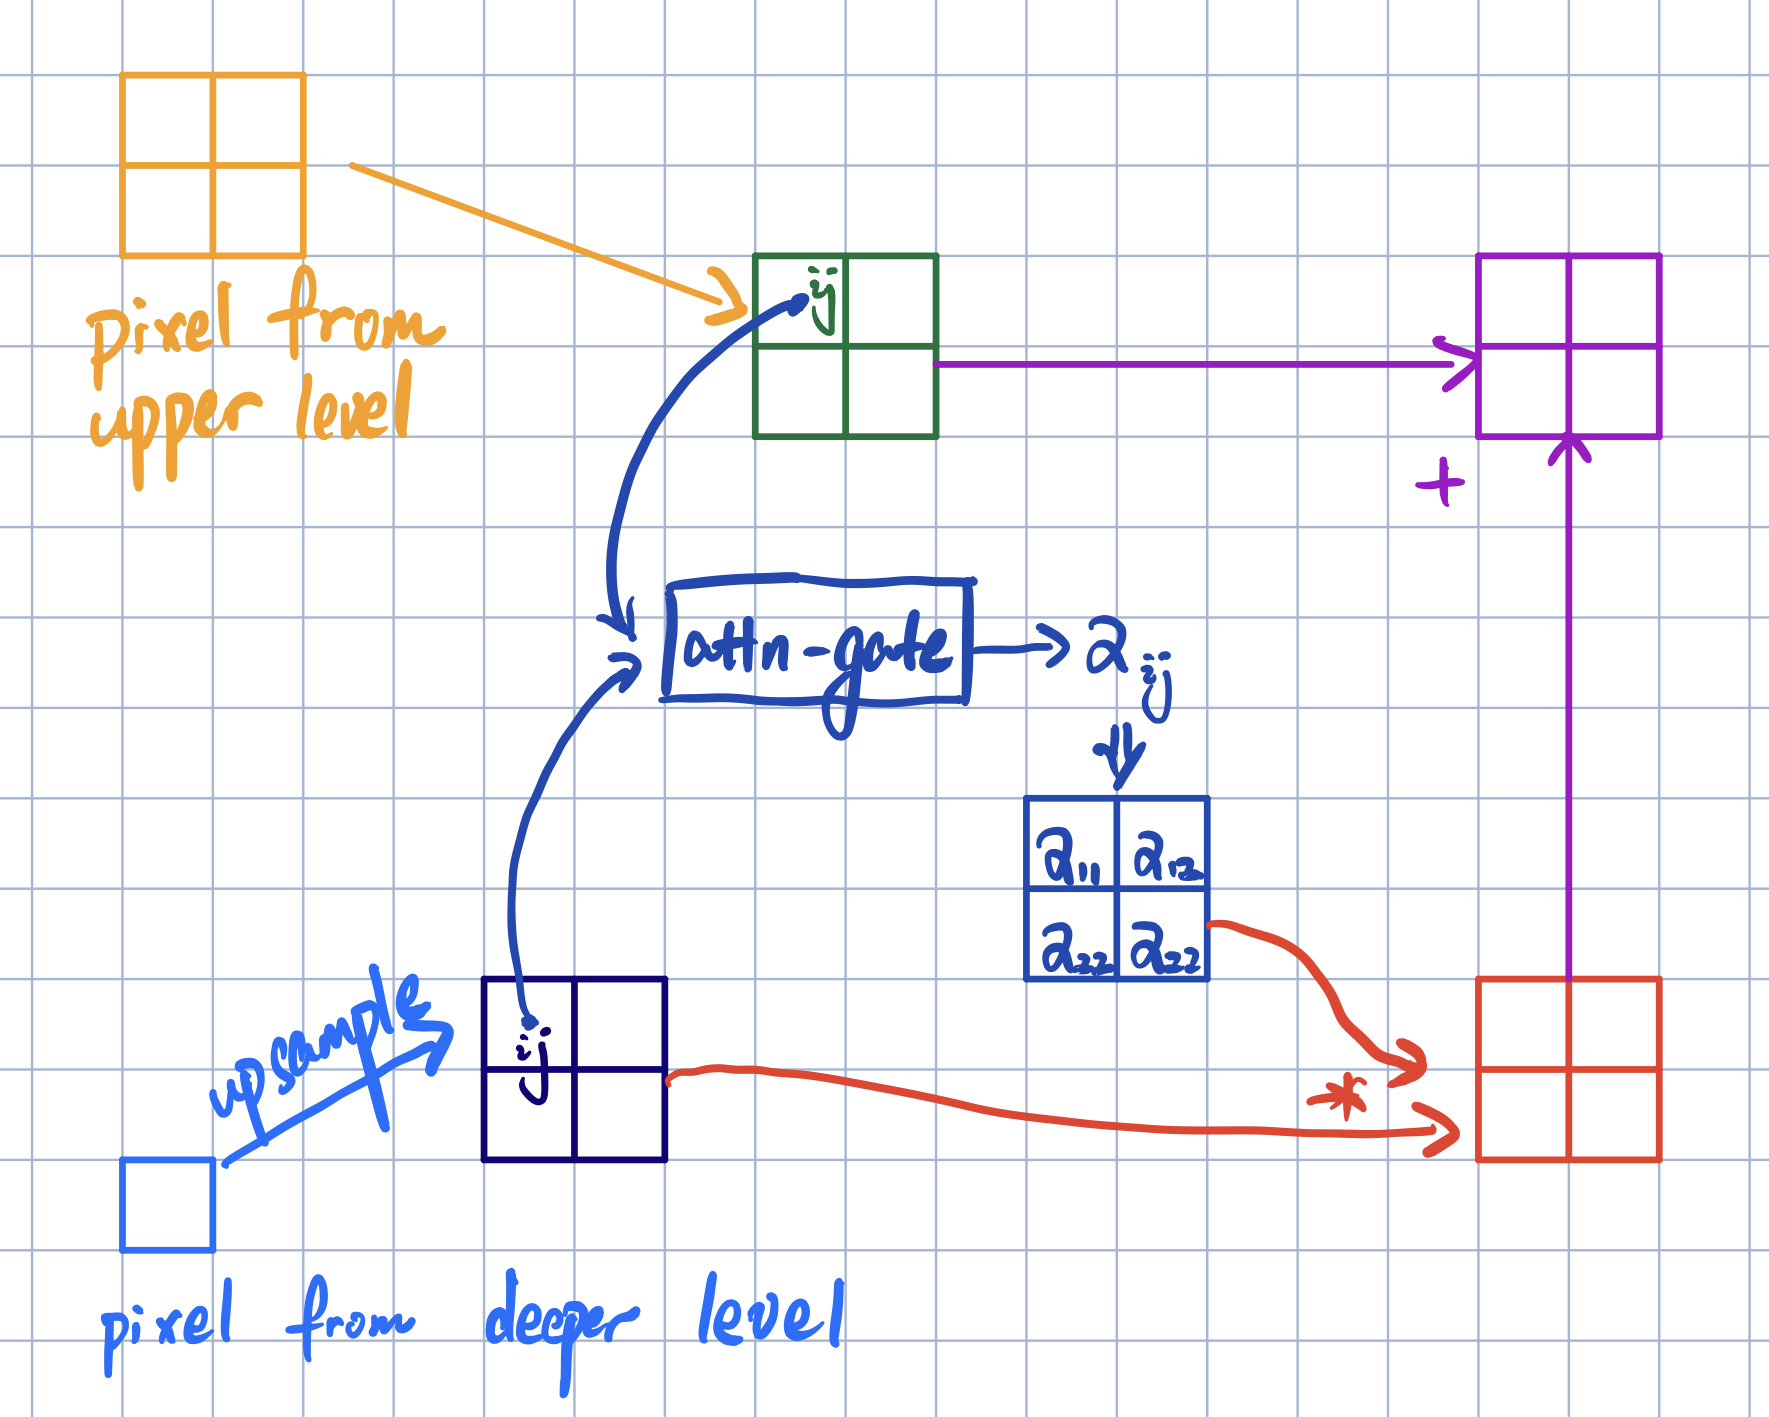 pixel from
upper level
ij
+
attn-gate
a ij
a11 a12
a22 a22
upsample
ij
*
pixel from deeper level